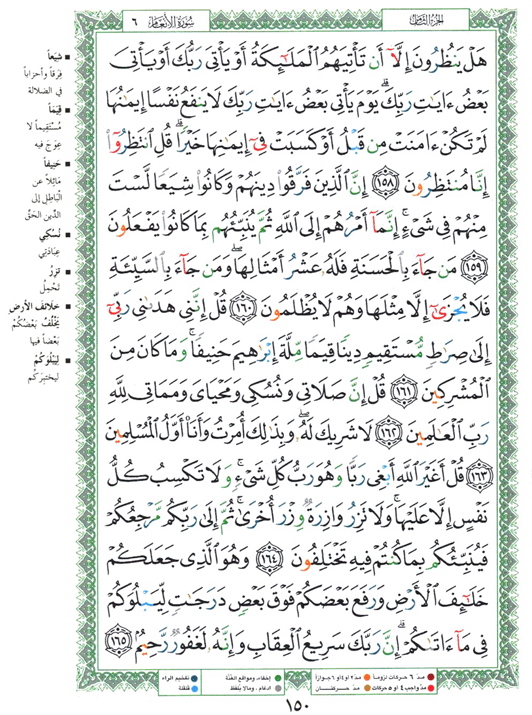 الجزء الثامن
سورة الأنعام
٦
هَلْ يَنظُرُونَ إِلَّآ أَن تَأْتِيَهُمُ ٱلْمَلَـٰٓئِكَةُ أَوْ يَأْتِىَ رَبُّكَ أَوْ يَأْتِىَ
بَعْضُ ءَايَـٰتِ رَبِّكَ ۗ يَوْمَ يَأْتِى بَعْضُ ءَايَـٰتِ رَبِّكَ لَا يَنفَعُ نَفْسًا إِيمَـٰنُهَا
لَمْ تَكُنْ ءَامَنَتْ مِن قَبْلُ أَوْ كَسَبَتْ فِىٓ إِيمَـٰنِهَا خَيْرًا ۗ قُلِ ٱنتَظِرُوٓا۟
إِنَّا مُنتَظِرُونَ ١٥٨ إِنَّ ٱلَّذِينَ فَرَّقُوا۟ دِينَهُمْ وَكَانُوا۟ شِيَعًا لَّسْتَ
مِنْهُمْ فِى شَىْءٍ ۚ إِنَّمَآ أَمْرُهُمْ إِلَى ٱللَّهِ ثُمَّ يُنَبِّئُهُم بِمَا كَانُوا۟ يَفْعَلُونَ
١٥٩ مَن جَآءَ بِٱلْحَسَنَةِ فَلَهُۥ عَشْرُ أَمْثَالِهَا ۖ وَمَن جَآءَ بِٱلسَّيِّئَةِ
فَلَا يُجْزَىٰٓ إِلَّا مِثْلَهَا وَهُمْ لَا يُظْلَمُونَ ١٦٠ قُلْ إِنَّنِى هَدَىٰنِى رَبِّىٓ
إِلَىٰ صِرَٰطٍ مُّسْتَقِيمٍ دِينًا قِيَمًا مِّلَّةَ إِبْرَٰهِيمَ حَنِيفًا ۚ وَمَا كَانَ مِنَ
ٱلْمُشْرِكِينَ ١٦١ قُلْ إِنَّ صَلَاتِى وَنُسُكِى وَمَحْيَاىَ وَمَمَاتِى لِلَّهِ
رَبِّ ٱلْعَـٰلَمِينَ ١٦٢ لَا شَرِيكَ لَهُۥ ۖ وَبِذَٰلِكَ أُمِرْتُ وَأَنَا۠ أَوَّلُ ٱلْمُسْلِمِينَ
١٦٣ قُلْ أَغَيْرَ ٱللَّهِ أَبْغِى رَبًّا وَهُوَ رَبُّ كُلِّ شَىْءٍ ۚ وَلَا تَكْسِبُ كُلُّ
نَفْسٍ إِلَّا عَلَيْهَا ۚ وَلَا تَزِرُ وَازِرَةٌ وِزْرَ أُخْرَىٰ ۚ ثُمَّ إِلَىٰ رَبِّكُم مَّرْجِعُكُمْ
فَيُنَبِّئُكُم بِمَا كُنتُمْ فِيهِ تَخْتَلِفُونَ ١٦٤ وَهُوَ ٱلَّذِى جَعَلَكُمْ
خَلَـٰٓئِفَ ٱلْأَرْضِ وَرَفَعَ بَعْضَكُمْ فَوْقَ بَعْضٍ دَرَجَـٰتٍ لِّيَبْلُوَكُمْ
فِى مَآ ءَاتَىٰكُمْ ۗ إِنَّ رَبَّكَ سَرِيعُ ٱلْعِقَابِ وَإِنَّهُۥ لَغَفُورٌ رَّحِيمٌۢ ١٦٥
شِيَعاً
فِرَقاً وأحزاباً
في الضلالة
قِيَماً
مُسْتَقِيماً لا
عِوَجَ فيه
حَنِيفاً
مَائِلاً عن
الْبَاطِلِ إلى
الدِّين الحَقِّ
نُسُكِي
عِبَادَتِي
تَزِرُ
تَحْمِلُ
خلائف الأرض
يَخْلُفُ بَعْضُكُمْ
بعضاً فيها
لِيَبْلُوَكُمْ
ليختبركم
مدّ ٦ حركات لزوماً
مدّ ٢ أو ٤ أو ٦ جوازاً
مدّ واجب ٤ أو ٥ حركات
مدّ حركتان
إخفاء، ومواقع الغُنَّة
إدغام، وما لا يُلفَظ
تفخيم الراء
قلقلة
١٥٠